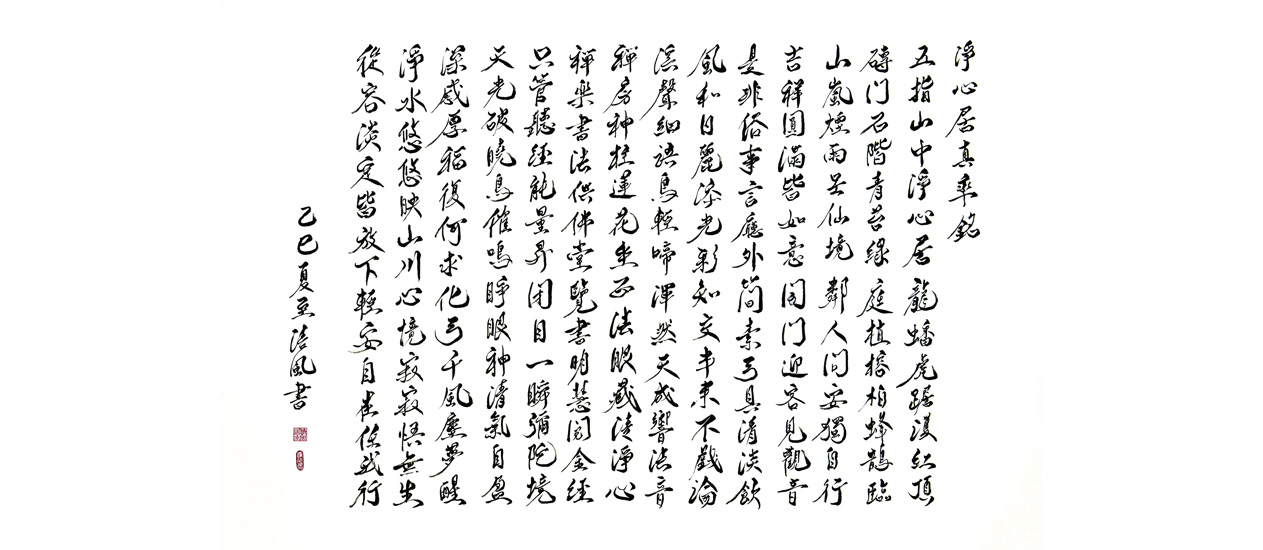 淨心居真乘銘
五指山中淨心居龍蟠虎踞護紅頂
磚門石階青苔綠庭植榕柏蜂鵲臨
山嵐煙雨是仙境鄰人問安獨自行
吉祥圓滿皆如意開門迎客見觀音
是非俗事言廳外簡素弓具清淡飲
風和日麗添光彩知交半來不戲論
溪聲細語鳥輕啼渾然天成響法音
禪房神柱蓮花坐正法眼藏清淨心
禪樂書法供佛堂覽書明慧閱金經
只管聽經能量昇閉目一瞬彌陀境
天光破曉鳥催鳴睜眼神清氣自盈
深感厚福復何求化弓千風塵夢醒
淨水悠悠映山川心境寂寂悟無生
從容淡定皆放下輕安自在任我行
乙巳夏至浩風書